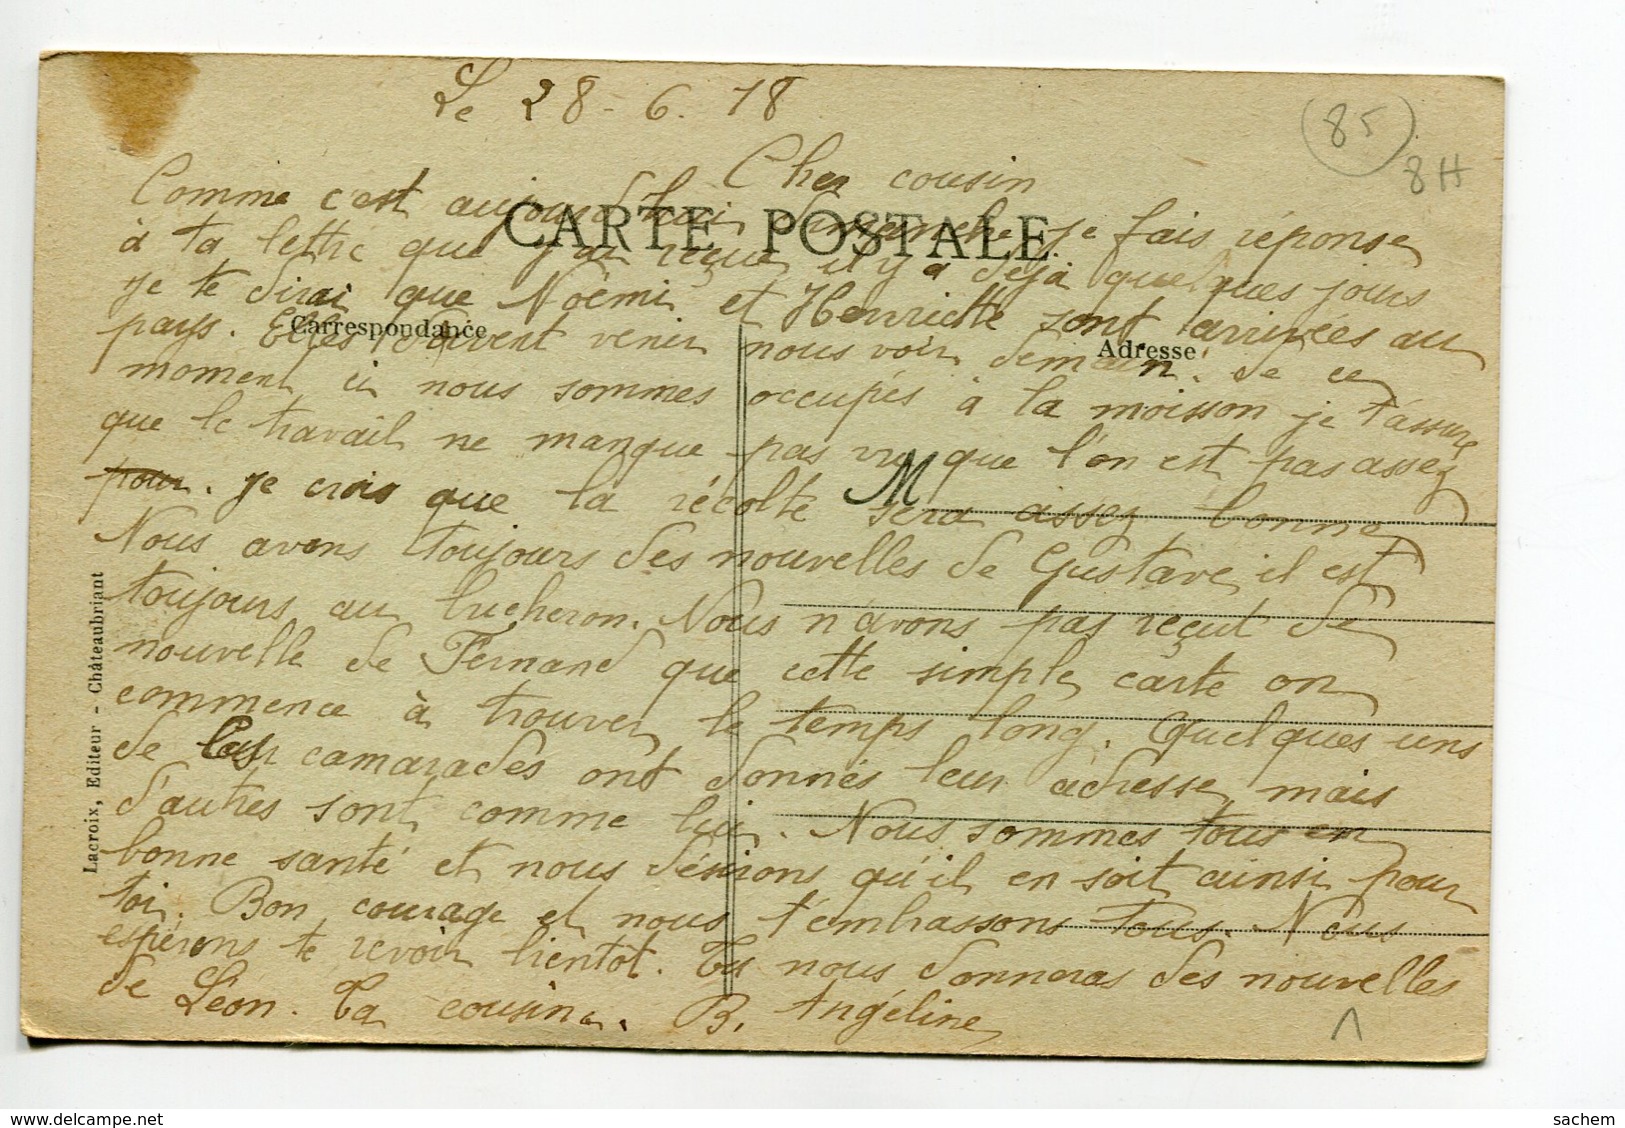 Le 28-6.18
85
8H
Cher cousin
CARTE POSTALE
Comme c'est aujourd'hui dimanche, je fais réponse
à ta lettre que j'ai reçue il y a déjà quelques jours
je te dirai que Noëmi et Henriette sont arrivées au
Correspondance
Adresse
pays. Elles doivent venir nous voir demain. De ce
moment ci nous sommes occupés à la moisson je t'assure
que le travail ne manque pas vu que l'on est pas assez
M
pour. Je crois que la récolte sera assez bonne
Nous avons toujours des nouvelles de Gustave, il est
toujours au bucheron. Nous n'avons pas reçut de
nouvelle de Fernand que cette simple carte on
commence à trouver le temps long. Quelques uns
de ces camarades ont donnés leur adresse, mais
d'autres sont comme lui. Nous sommes tous en
bonne santé et nous désirons qu'il en soit ainsi pour
toi. Bon courage et nous t'embrassons tous. Nous
espérons te revoir bientôt. Tu nous donneras des nouvelles
de Léon. Ta cousine. B. Angéline
Lacroix, Editeur - Châteaubriant
delcampe.net
sachem